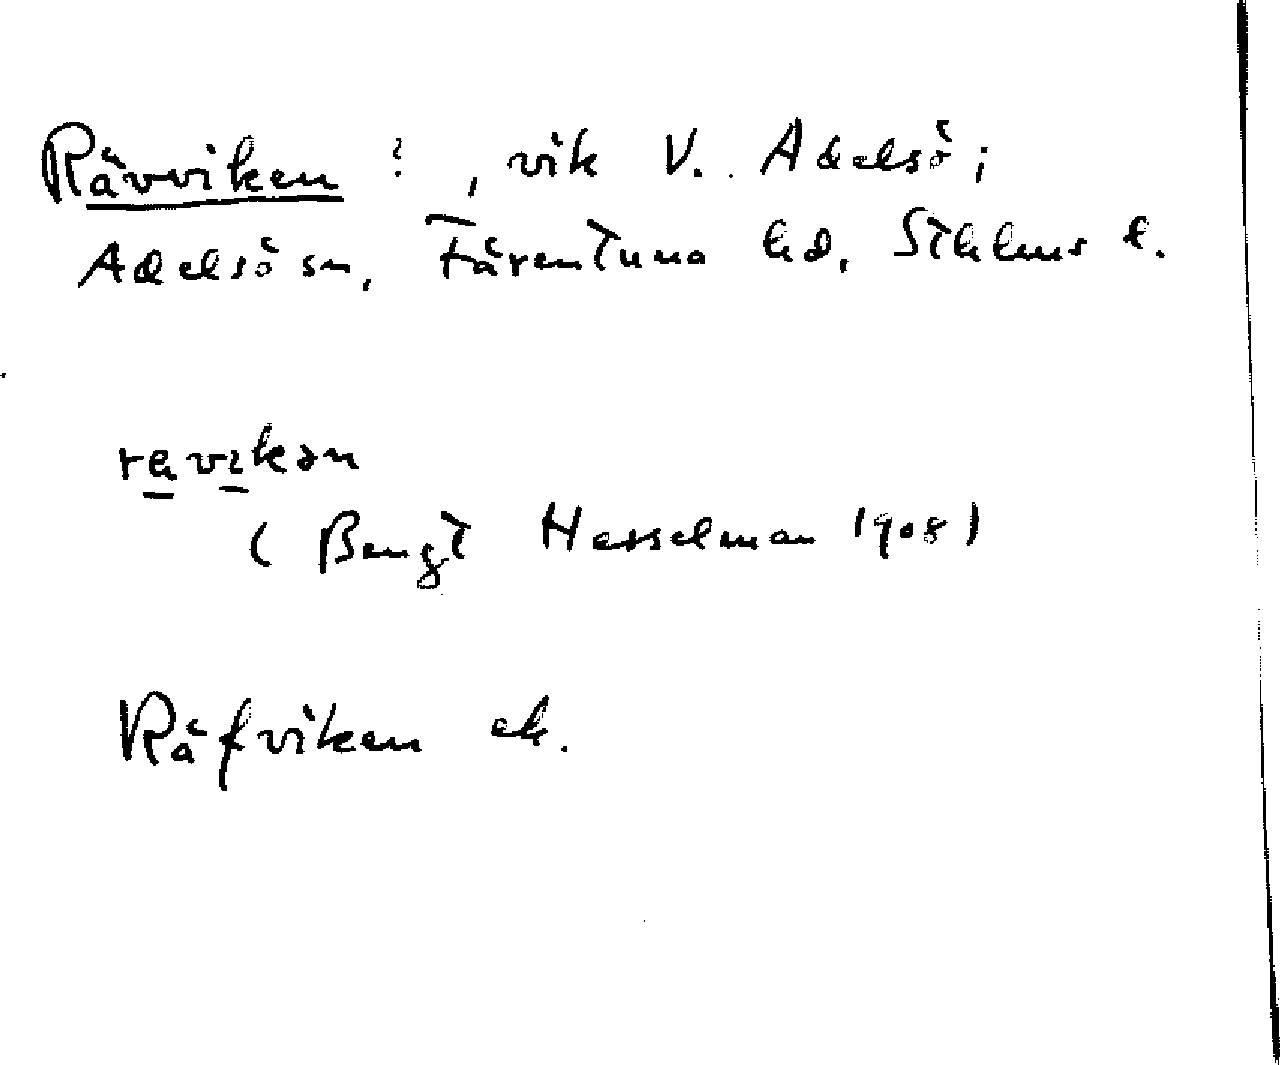 Rävviken ?, vik V. Adelsö i
Adelsö sn, Färentuna hd, Sthlms l.
rävikən
(Bengt Hesselman 1908)
Räfviken ek.